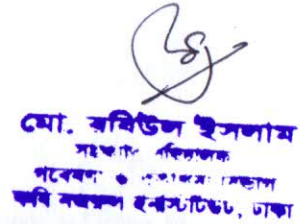 মো. রবিউল ইসলাম
সহকারী পরিচালক
গবেষণা ও প্রকাশনা বিভাগ
কবি নজরুল ইনস্টিটিউট, ঢাকা